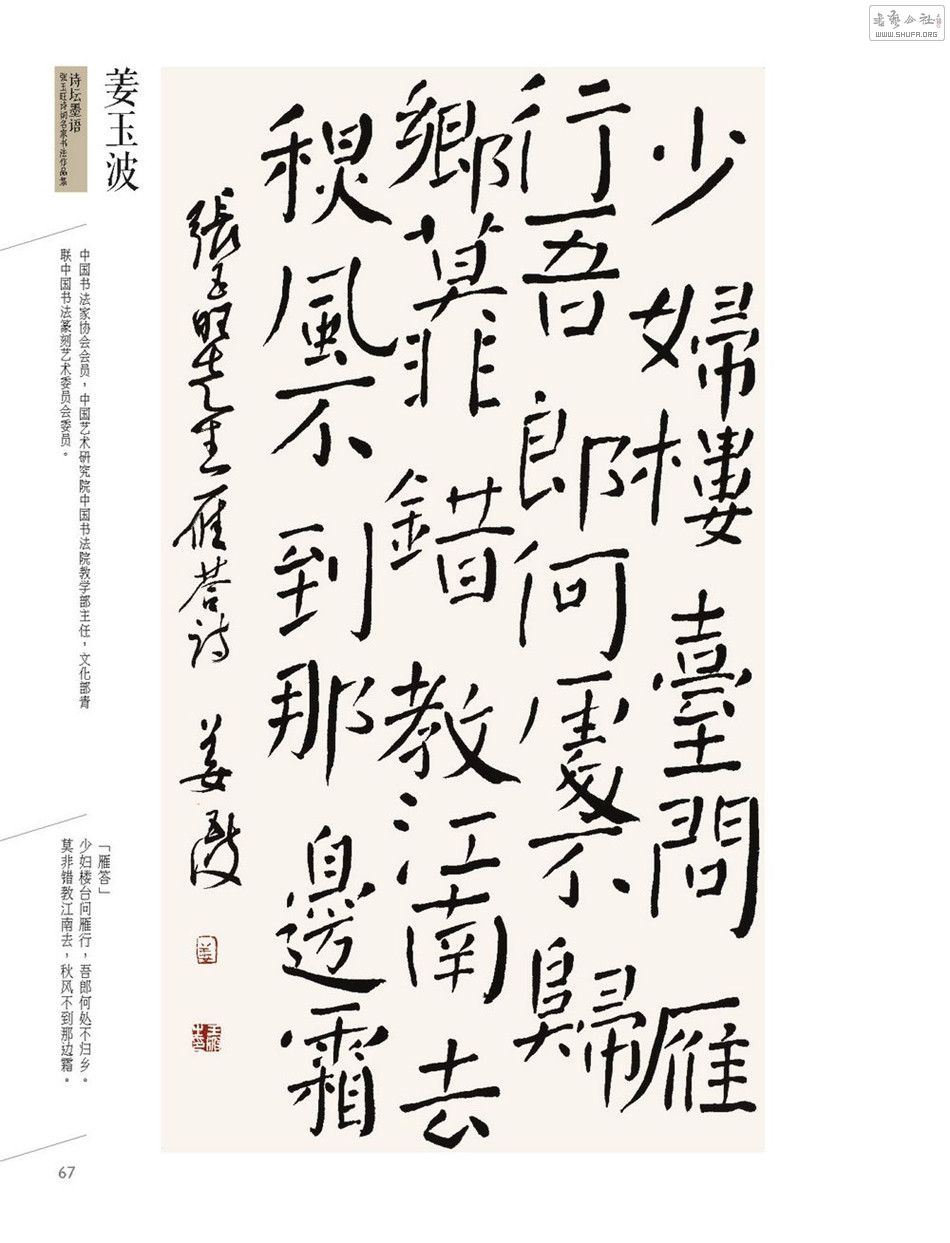 少婦樓臺問雁
行吾郎何處不歸
鄉莫非錯教江南去
秋風不到那邊霜
張玉旺先生雁荅詩 姜玉波
姜玉波
诗坛墨语
张玉旺诗词名家书法作品集
中国书法家协会会员，中国艺术研究院中国书法院教学部主任，文化部青
联中国书法篆刻艺术委员会委员。
「雁答」
少妇楼台问雁行，吾郎何处不归乡。
莫非错教江南去，秋风不到那边霜。
67
WWW.SHUFA.ORG